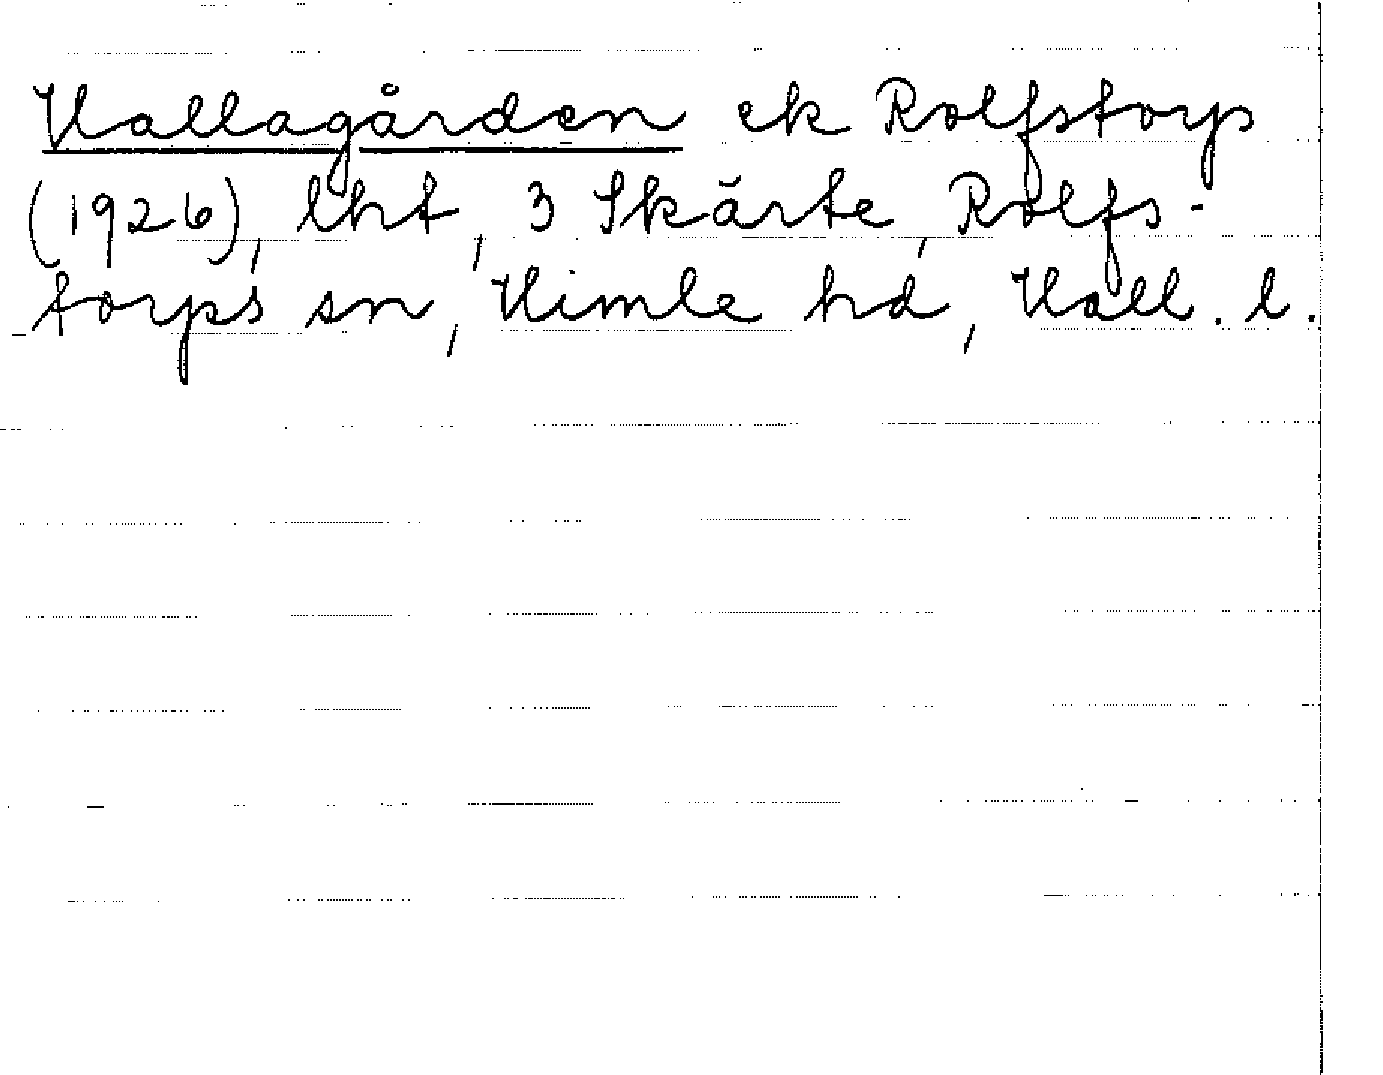 Hallagården ek Rolfstorp
(1926), lht, 3 Skärte, Rolfs-
torps sn, Himle hd, Hall. l.